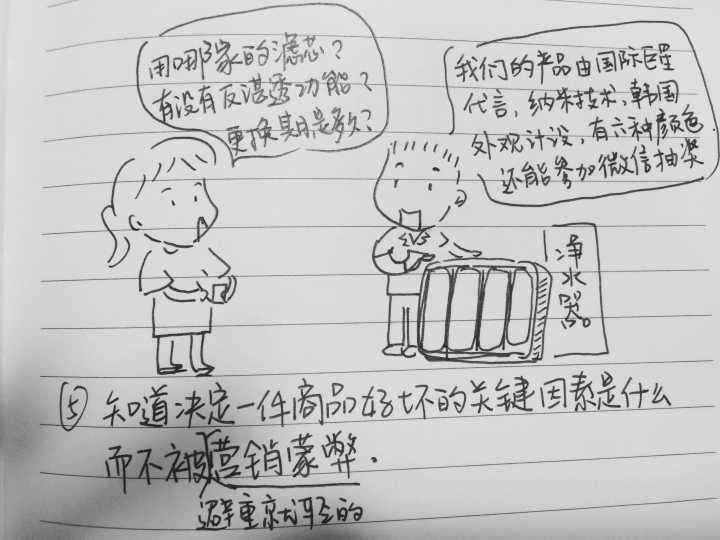 用哪家的滤芯？
有没有反湛透功能？
更换期是多久？
我们的产品由国际巨星
代言，纳米技术，韩国
外观计设，有六种颜色
还能参加微信抽奖
净水器
⑤ 知道决定一件商品好坏的关键因素是什么
而不被营销蒙弊.
避重就轻的